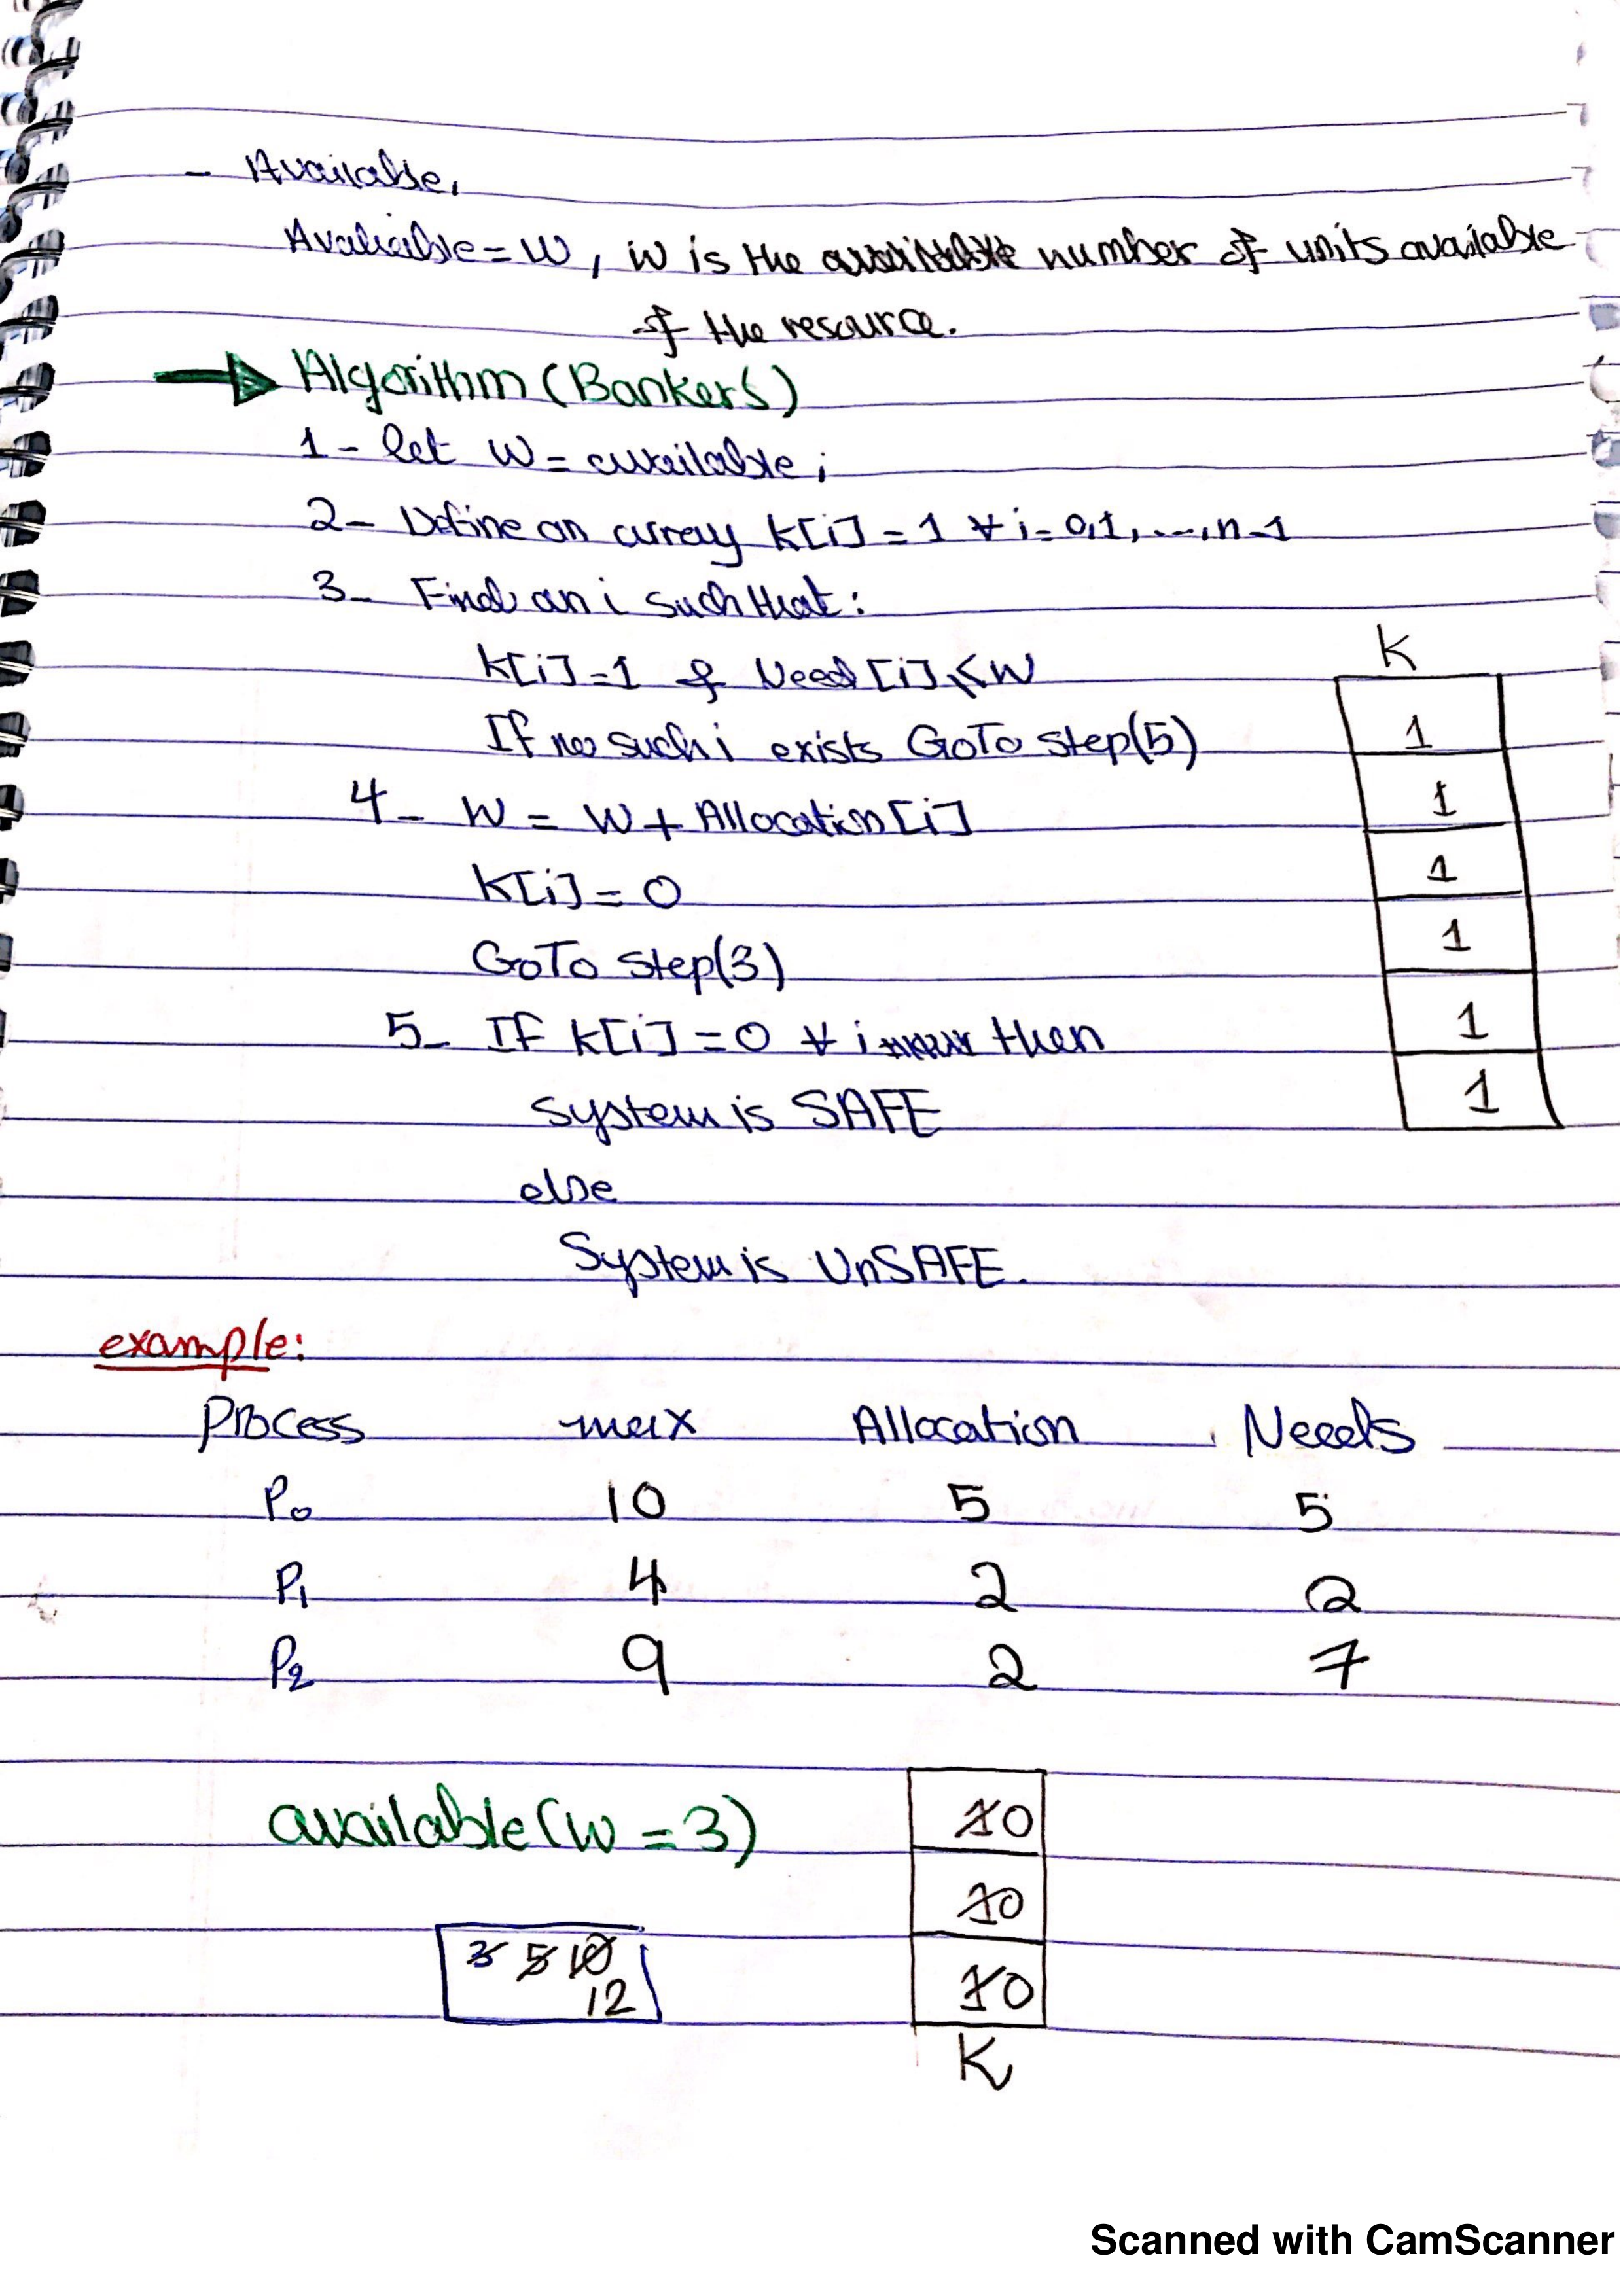 - Available,
Avaliable = W, W is the number of units available
of the resource.
Algorithm (Bankers)
1- let W = available;
2- Define an array k[i] = 1 ∀ i = 0,1,...,n-1
3- Find an i such that:
k[i]=1 & Need[i] ≤ W
If no such i exists GoTo step(5)
4- W = W + Allocation[i]
k[i] = 0
GoTo step(3)
5- If k[i] = 0 ∀ i then
system is SAFE
else
System is UnSAFE.
K
1
1
1
1
1
1
example:
Process max Allocation Needs
P0 10 5 5
P1 4 2 2
P2 9 2 7
available (W = 3)
3 5 10
12
1 0
1 0
1 0
K
Scanned with CamScanner